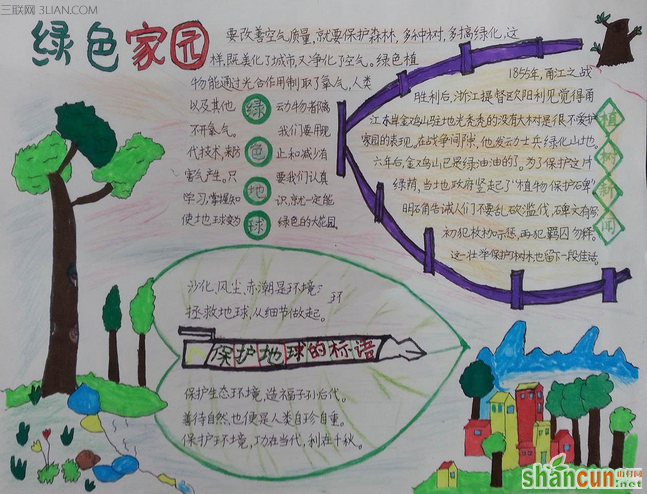 三联网 3LIAN.COM
绿色家园
要改善空气质量,就要保护森林,多种树,多搞绿化,这
样,既美化了城市,又净化了空气。绿色植
物能通过光合作用制取了氧气,人类
以及其他
动物者隔
不开氧气。
我们要用现
代技术,来防
止和减少有
害气产生。只
要我们认真
学习,掌握知
识,就一定能
使地球变为
绿色的大花园。
绿
色
地
球
1855年,甬江之战
胜利后,浙江提督欧阳利见觉得甬
江东岸金鸡山驻地光秃秃的没有大树是很不爱护
家园的表现。在战争间隙,他发动士兵绿化山地。
六年后,金鸡山已是绿油油的了。为了保护这片
绿荫,当地政府竖起了“植物保护碑”
明石角告诫人们不要乱砍滥伐,碑文有
初犯枚杨示惩,再犯羁囚勿释。
这一壮举保护了树木也留下一段佳话。
植
树
新
闻
沙化,风尘,赤潮是环境
环
拯救地球,从细节做起。
保护地球的标语
保护生态环境,造福子孙后代。
善待自然,也便是人类自珍自重。
保护环境,功在当代,利在千秋。
shancun
山村网
.net